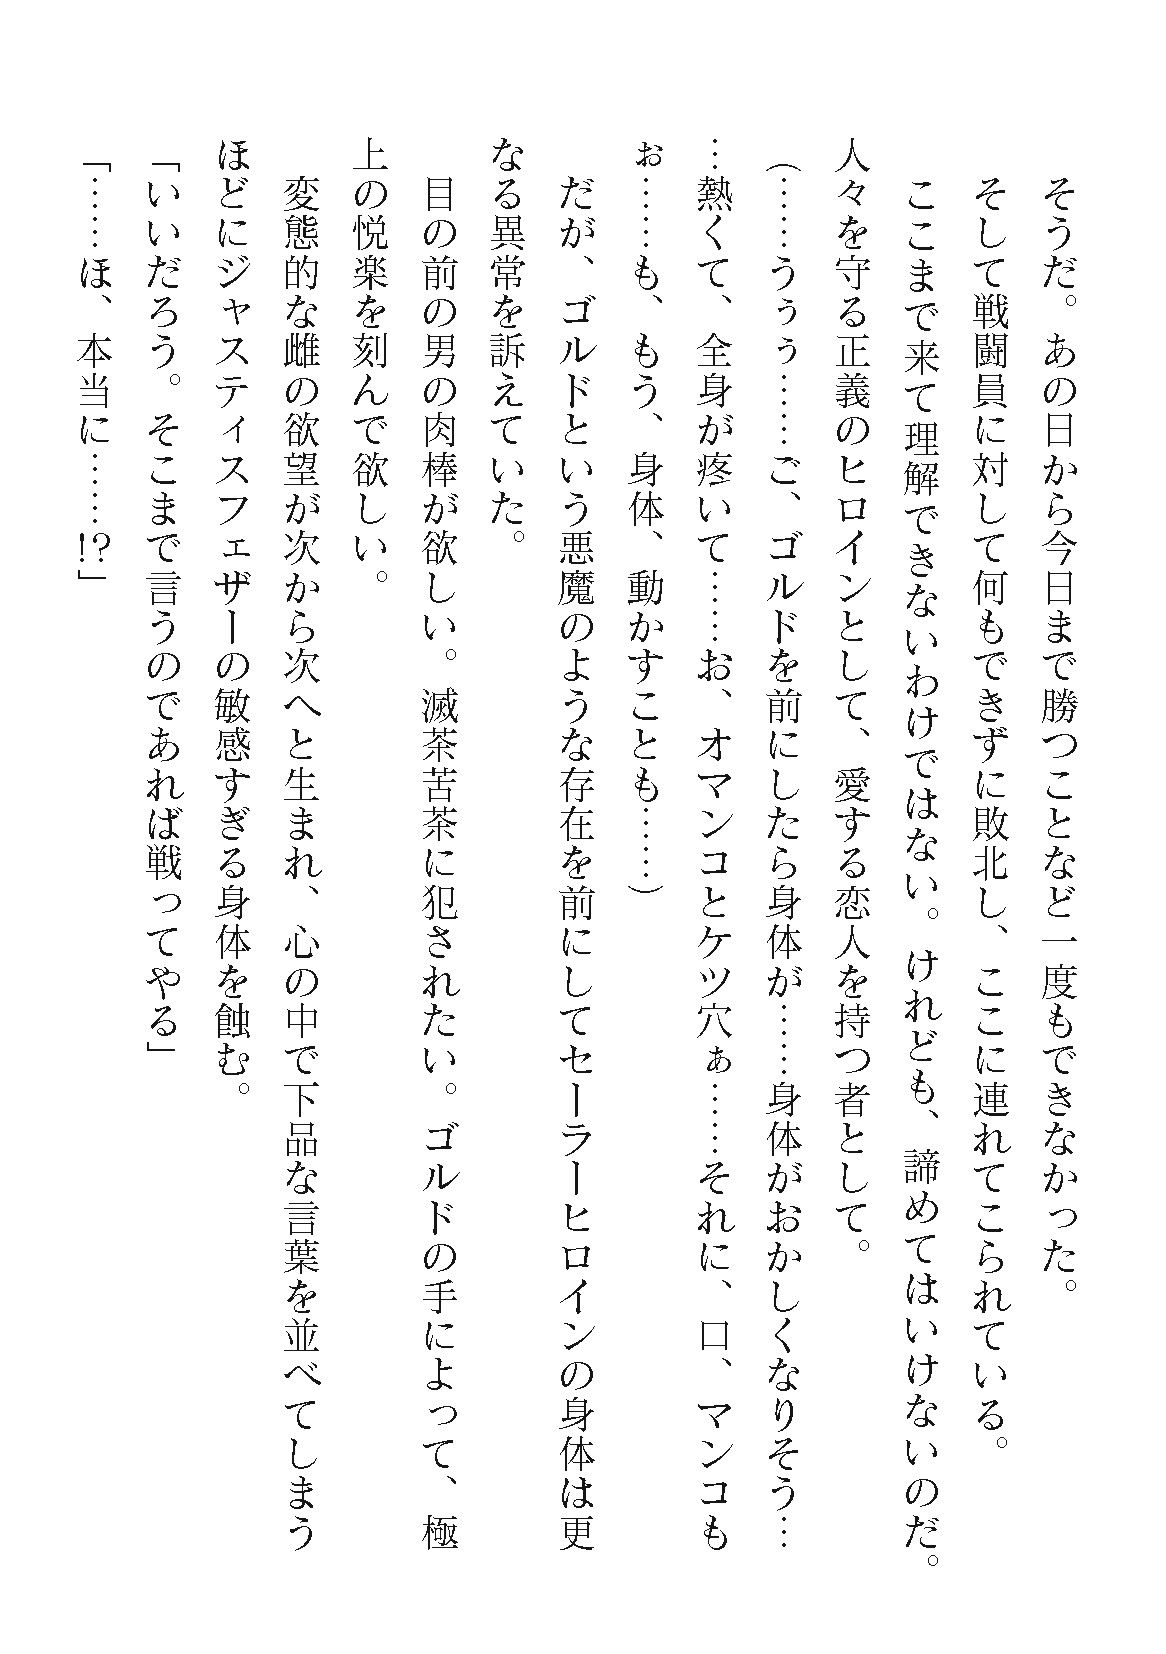 そうだ。あの日から今日まで勝つことなど一度もできなかった。
そして戦闘員に対して何もできずに敗北し、ここに連れてこられている。
ここまで来て理解できないわけではない。けれども、諦めてはいけないのだ。
人々を守る正義のヒロインとして、愛する恋人を持つ者として。
（……うぅぅ……ご、ゴルドを前にしたら身体が……身体がおかしくなりそう…
…熱くて、全身が疼いて……お、オマンコとケツ穴ぁ……それに、口、マンコも
ぉ……も、もう、身体、動かすことも……）
だが、ゴルドという悪魔のような存在を前にしてセーラーヒロインの身体は更
なる異常を訴えていた。
目の前の男の肉棒が欲しい。滅茶苦茶に犯されたい。ゴルドの手によって、極
上の悦楽を刻んで欲しい。
変態的な雌の欲望が次から次へと生まれ、心の中で下品な言葉を並べてしまう
ほどにジャスティスフェザーの敏感すぎる身体を蝕む。
「いいだろう。そこまで言うのであれば戦ってやる」
「……ほ、本当に……!?」